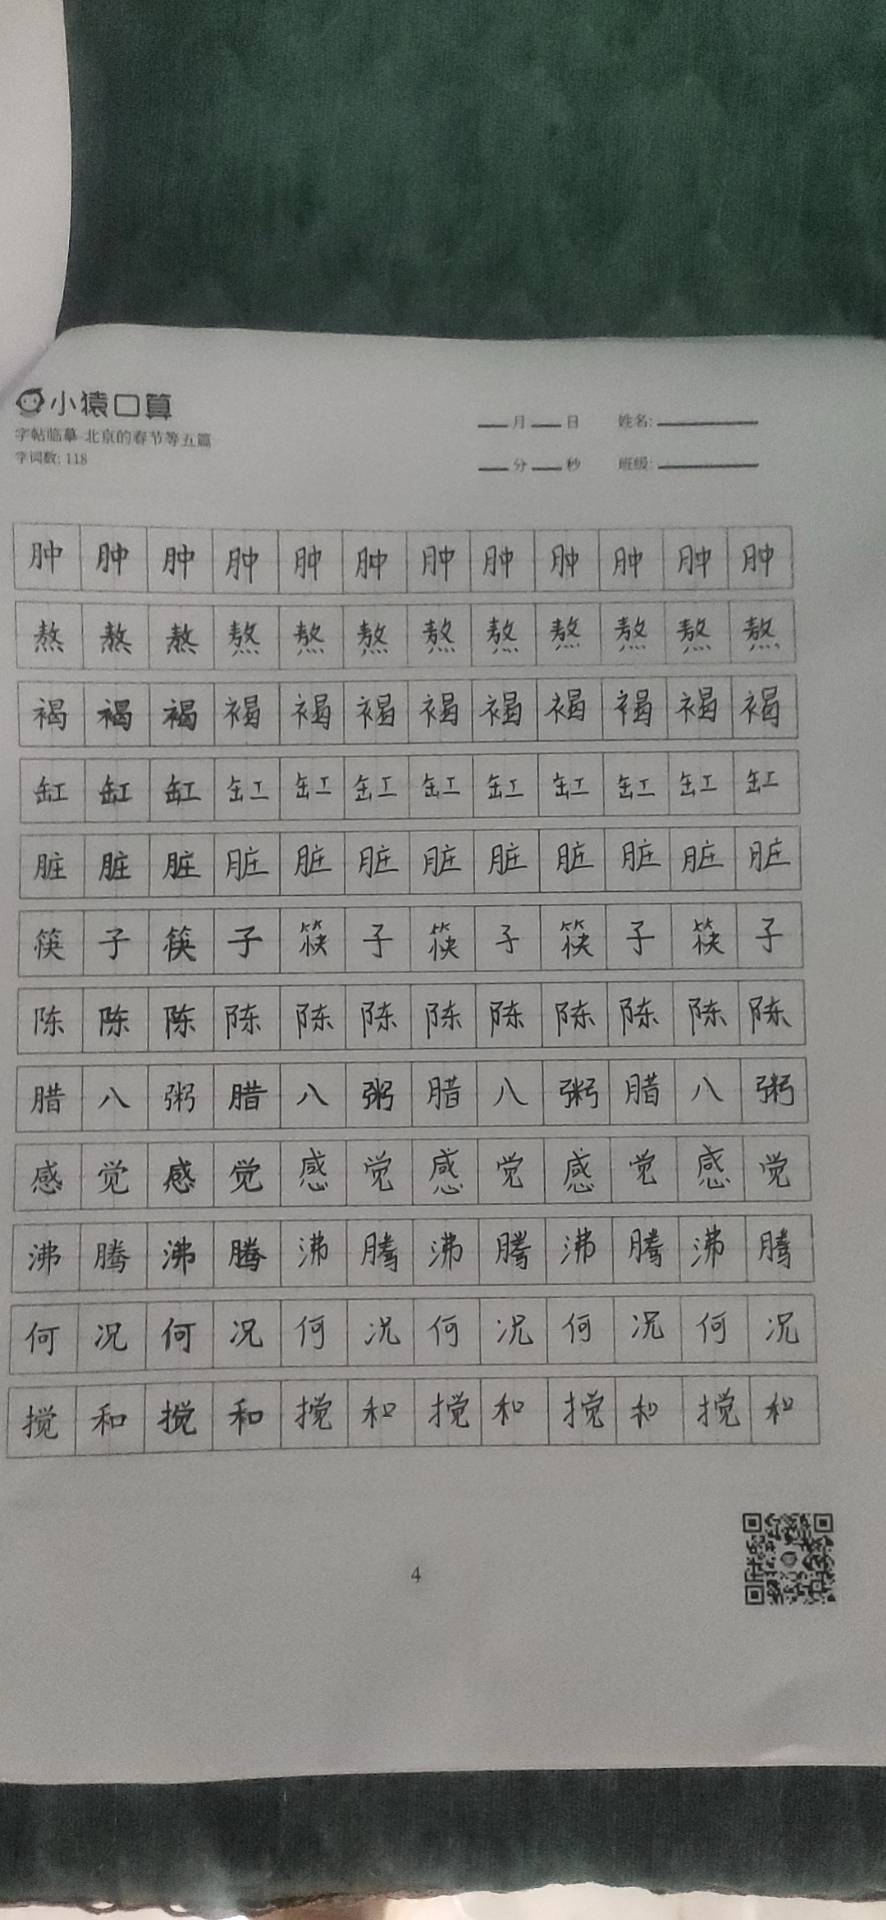 小猿口算
字帖临摹-北京的春节等五篇
字词数: 118
月 日 姓名:
分 秒 班级:
肿 肿 肿 肿 肿 肿 肿 肿 肿 肿 肿 肿
熬 熬 熬 熬 熬 熬 熬 熬 熬 熬 熬 熬
褐 褐 褐 褐 褐 褐 褐 褐 褐 褐 褐 褐
缸 缸 缸 缸 缸 缸 缸 缸 缸 缸 缸 缸
脏 脏 脏 脏 脏 脏 脏 脏 脏 脏 脏 脏
筷 子 筷 子 筷 子 筷 子 筷 子 筷 子
陈 陈 陈 陈 陈 陈 陈 陈 陈 陈 陈 陈
腊 八 粥 腊 八 粥 腊 八 粥 腊 八 粥
感 觉 感 觉 感 觉 感 觉 感 觉 感 觉
沸 腾 沸 腾 沸 腾 沸 腾 沸 腾 沸 腾
何 况 何 况 何 况 何 况 何 况 何 况
搅 和 搅 和 搅 和 搅 和 搅 和 搅 和
4